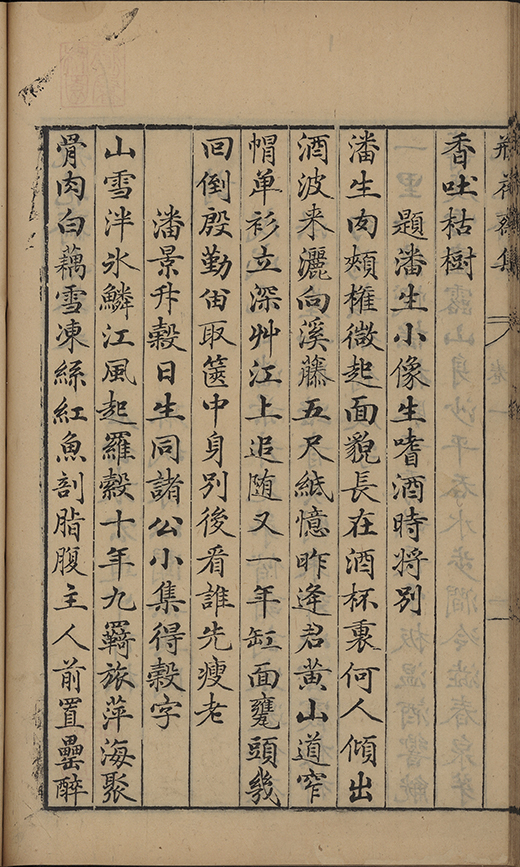 香吐枯樹
題潘生小像生嗜酒時将别
潘生肉頰權微起面貌長在酒杯裏何人傾出
酒波来灑向溪藤五尺紙憶昨逢君黄山道窄
帽单衫立深艸江上追随又一年缸面甕頭幾
回倒殷勤㽞取篋中身别後看誰先瘦老
潘景升穀日生同諸公小集得穀字
山雪泮氷鱗江風起羅縠十年九羇旅萍海聚
骨肉白藕雪凍絲紅魚剖脂腹主人前置罍醉